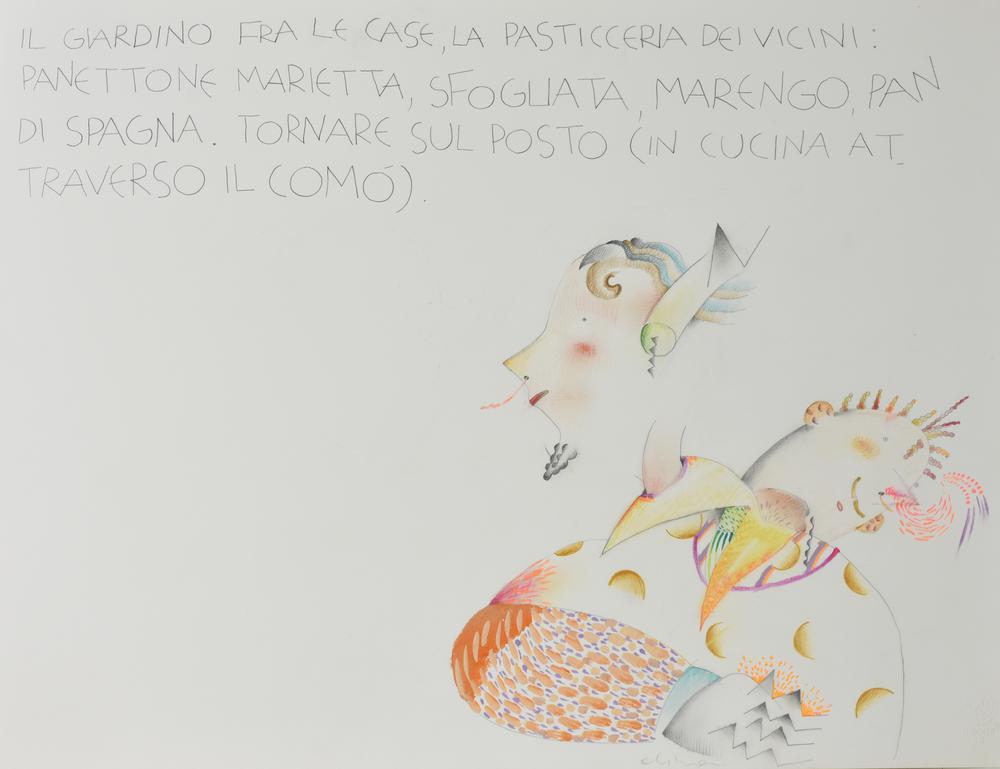 IL GIARDINO FRA LE CASE, LA PASTICCERIA DEI VICINI:
PANETTONE MARIETTA, SFOGLIATA, MARENGO, PAN
DI SPAGNA. TORNARE SUL POSTO (IN CUCINA AT_
TRAVERSO IL COMÓ).